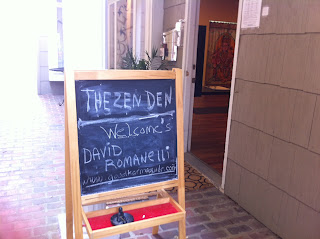 THE ZEN DEN
Welcome's
DAVID
ROMANELLi